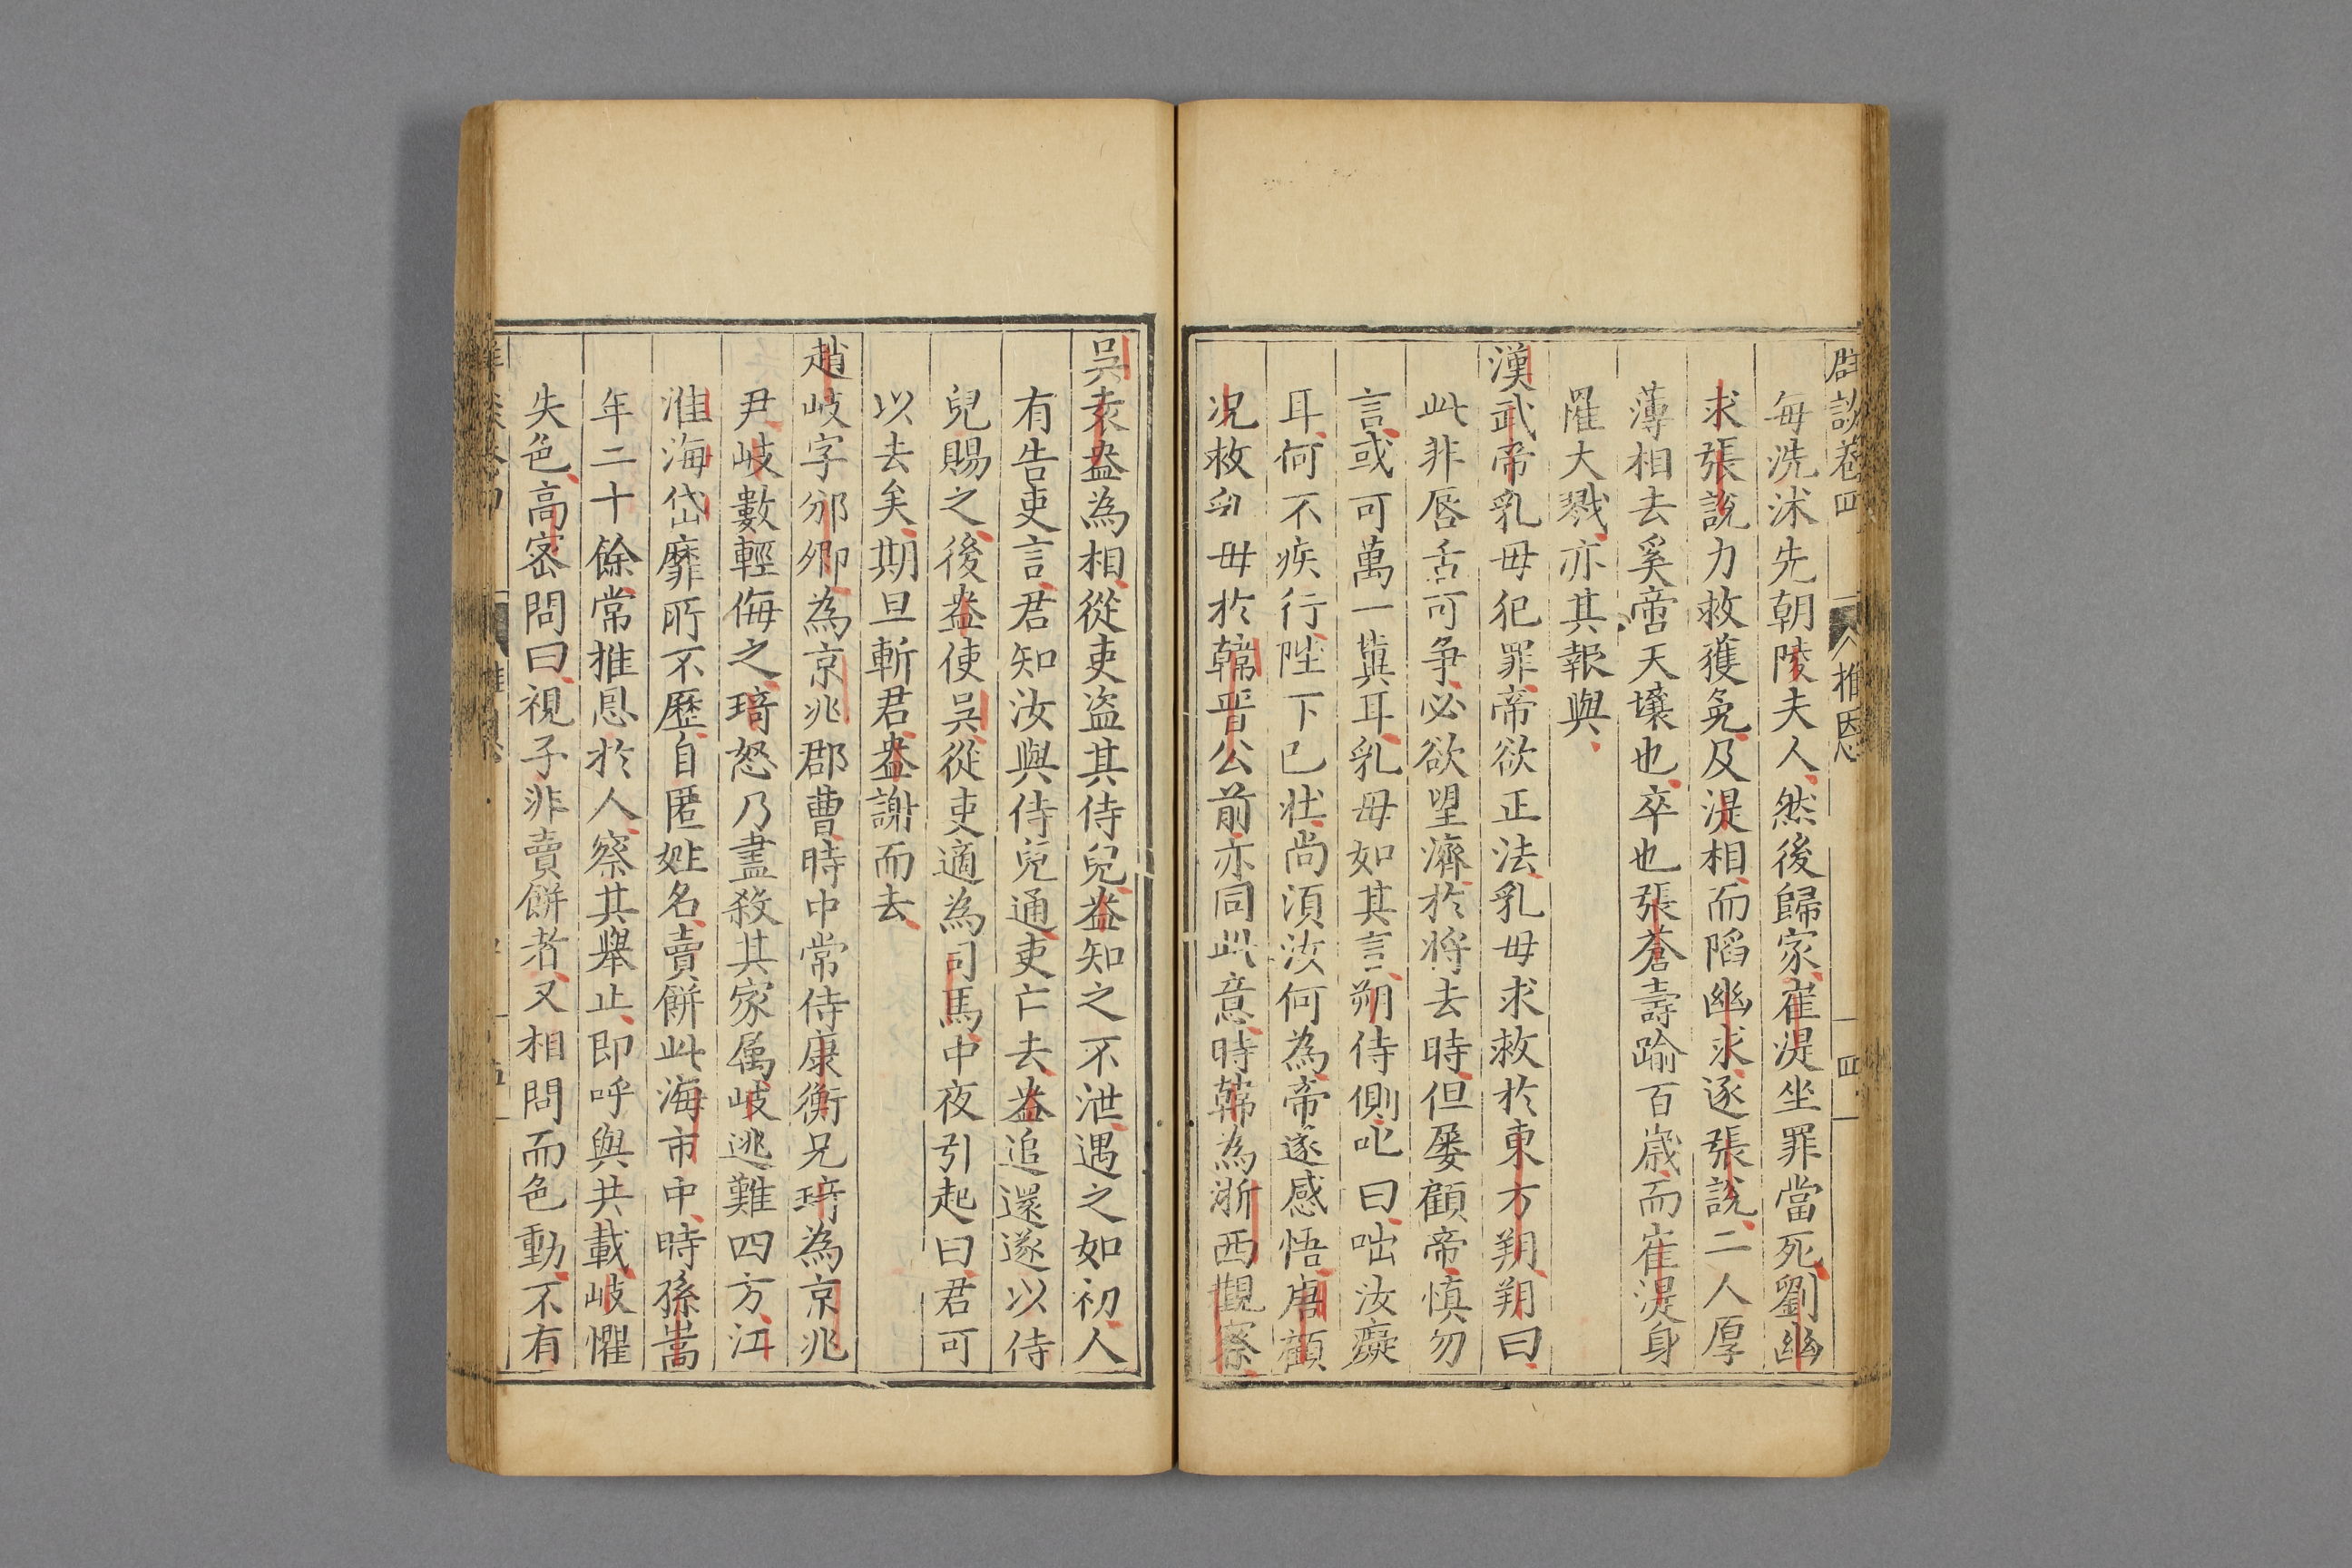 談卷四 推恩 四
每洗沭先朝陵夫人然後歸家崔湜坐罪當死劉幽
求張說力救獲免及湜相而陷幽求逐張說二人厚
薄相去奚啻天壤也卒也張蒼壽踰百歳而崔湜身
罹大戮亦其報與
漢武帝乳母犯罪帝欲正法乳母求救於東方朔朔曰
此非唇舌可争必欲望濟於将去時但屡顧帝慎勿
言或可萬一冀耳乳母如其言朔侍側叱曰咄汝癡
耳何不疾行陛下已壮尚湏汝何為帝遂感悟唐顧
况救乳母於韓晋公前亦同此意時韓為浙西觀察
吳袁盎為相從吏盗其侍兒盎知之不泄遇之如初人
有告吏言君知汝與侍兒通吏亡去盎追還遂以侍
兒賜之後盎使吳從吏適為司馬中夜引起曰君可
以去矣期旦斬君盎謝而去
趙岐字邠卿為京兆郡曹時中常侍康衡兄琦為京兆
尹岐數輕侮之琦怒乃盡殺其家属岐逃難四方江
淮海岱靡所不歷自匿姓名賣餅此海市中時孫嵩
年二十餘常推恩於人察其舉止即呼與共載岐懼
失色高密問曰視子非賣餅者又相問而色動不有